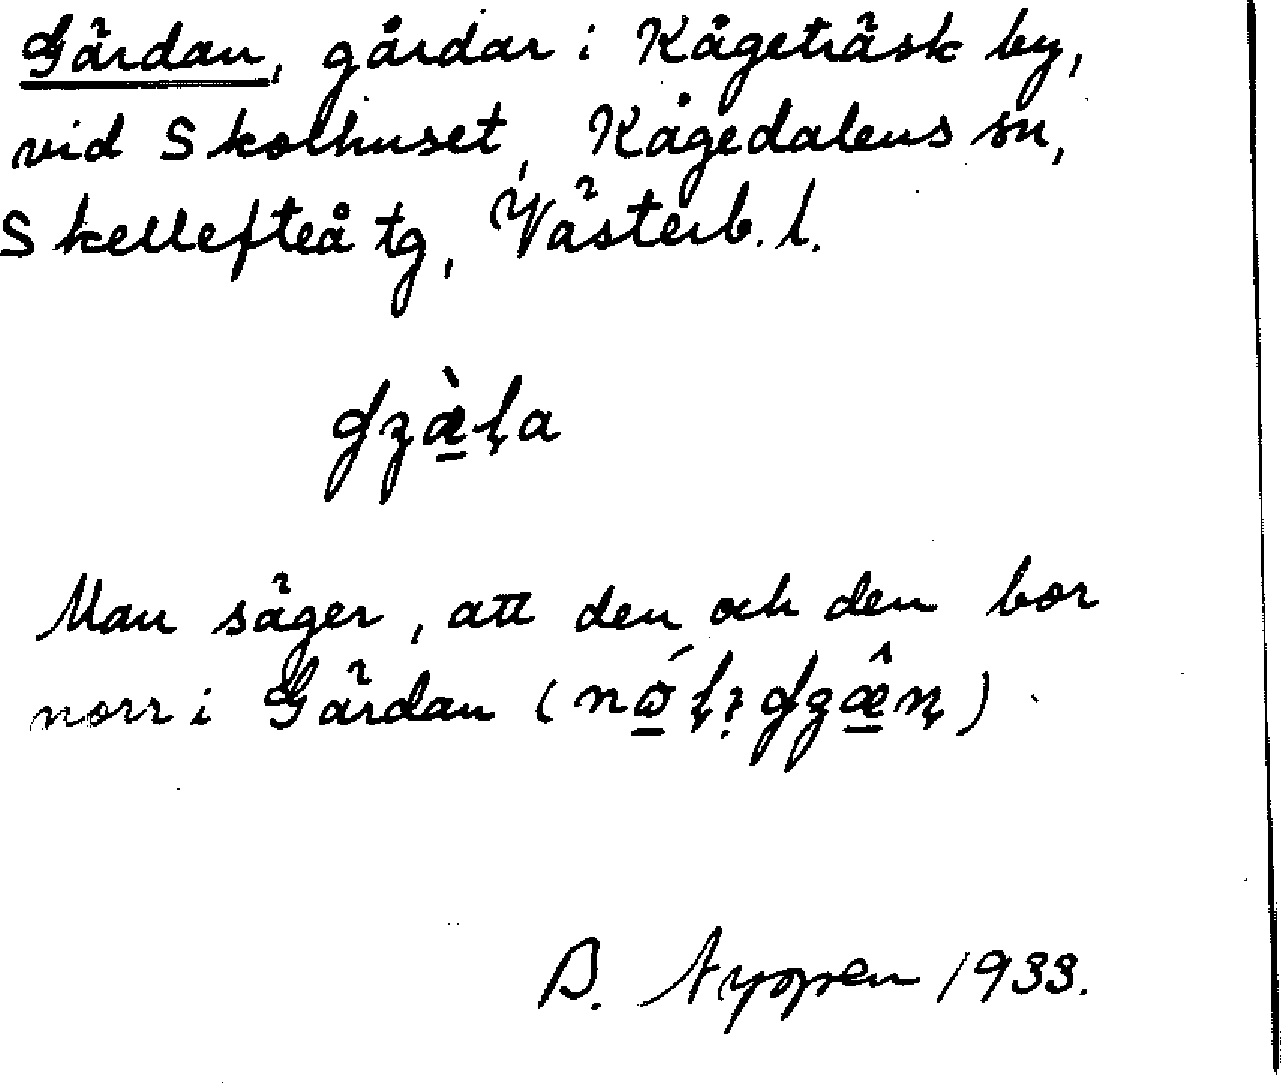 Gärdan, gårdar i Kågeträsk by,
vid Skolhuset, Kågedalens sn,
Skellefteå tg, Västerb. l.
Man säger, att den och den bor
norr i Gärdan
1933.